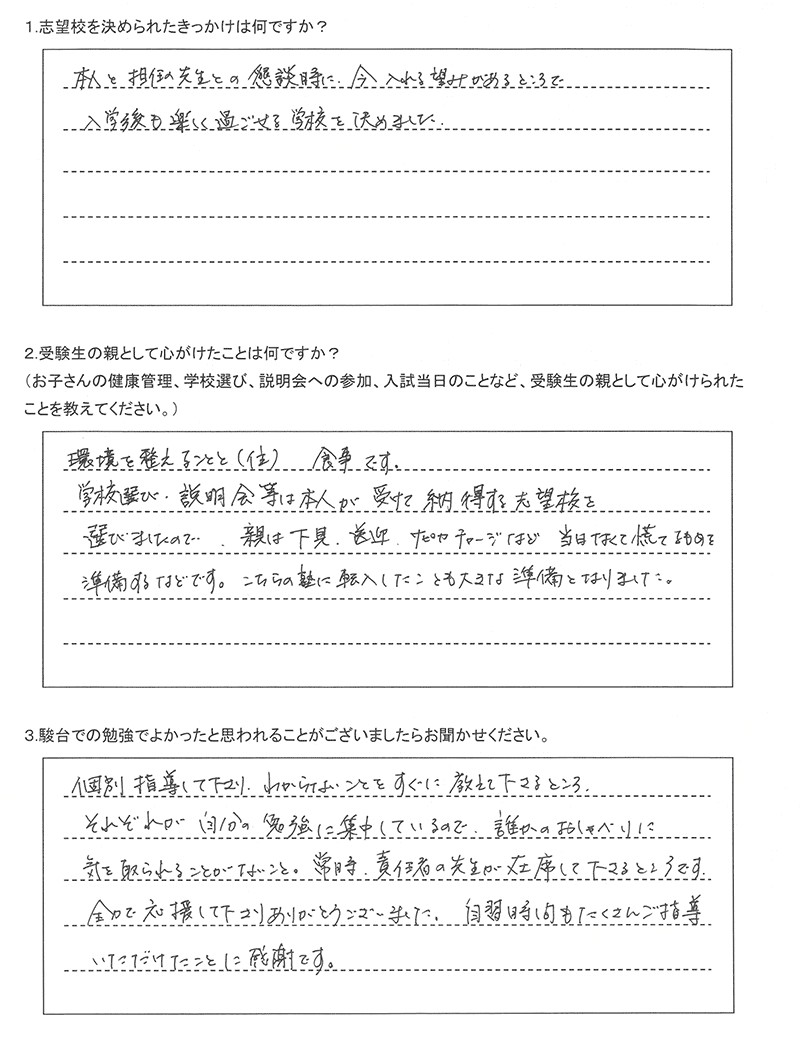 1.志望校を決められたきっかけは何ですか？
本人と担任の先生との懇談時に、今入れる望みがあるところで
入学後も楽しく過ごせる学校を決めました。
2.受験生の親として心がけたことは何ですか？
（お子さんの健康管理、学校選び、説明会への参加、入試当日のことなど、受験生の親として心がけられた
ことを教えてください。）
環境を整えることと(住) 食事です。
学校選び、説明会等は本人が受けて納得する志望校を
選びましたので、親は下見、送迎、ナビやチャージなど当日なくて慌てるものを
準備するなどです。こちらの塾に転入したことも大きな準備となりました。
3.駿台での勉強でよかったと思われることがございましたらお聞かせください。
個別指導して下さり、わからないことをすぐに教えて下さるところ。
それぞれが自分の勉強に集中しているので、誰かのおしゃべりに
気を取られることがないこと。常時、責任者の先生が在席して下さるところです。
全力で応援して下さりありがとうございました。自習時間もたくさんご指導
いただけたことに感謝です。